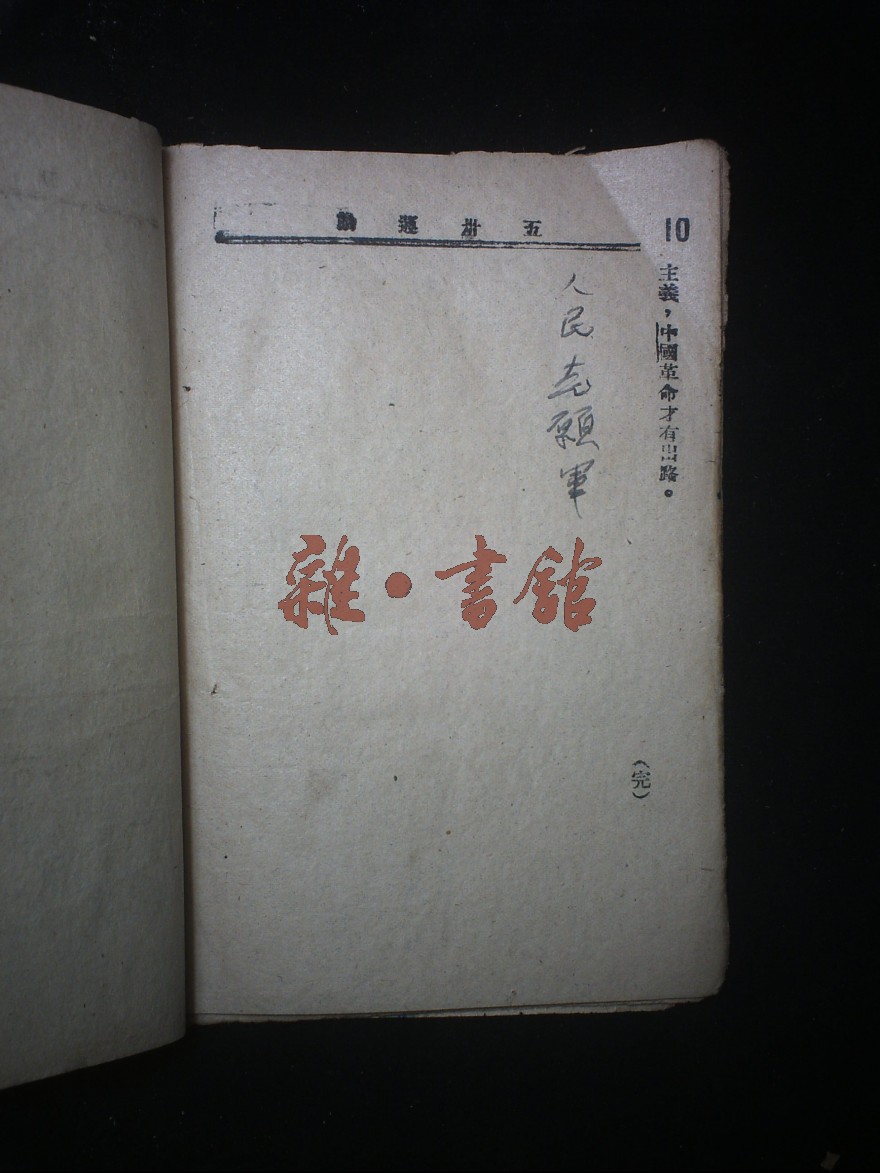 五卅運動
10
主義，中國革命才有出路。
（完）
人民志願軍
雜·書館